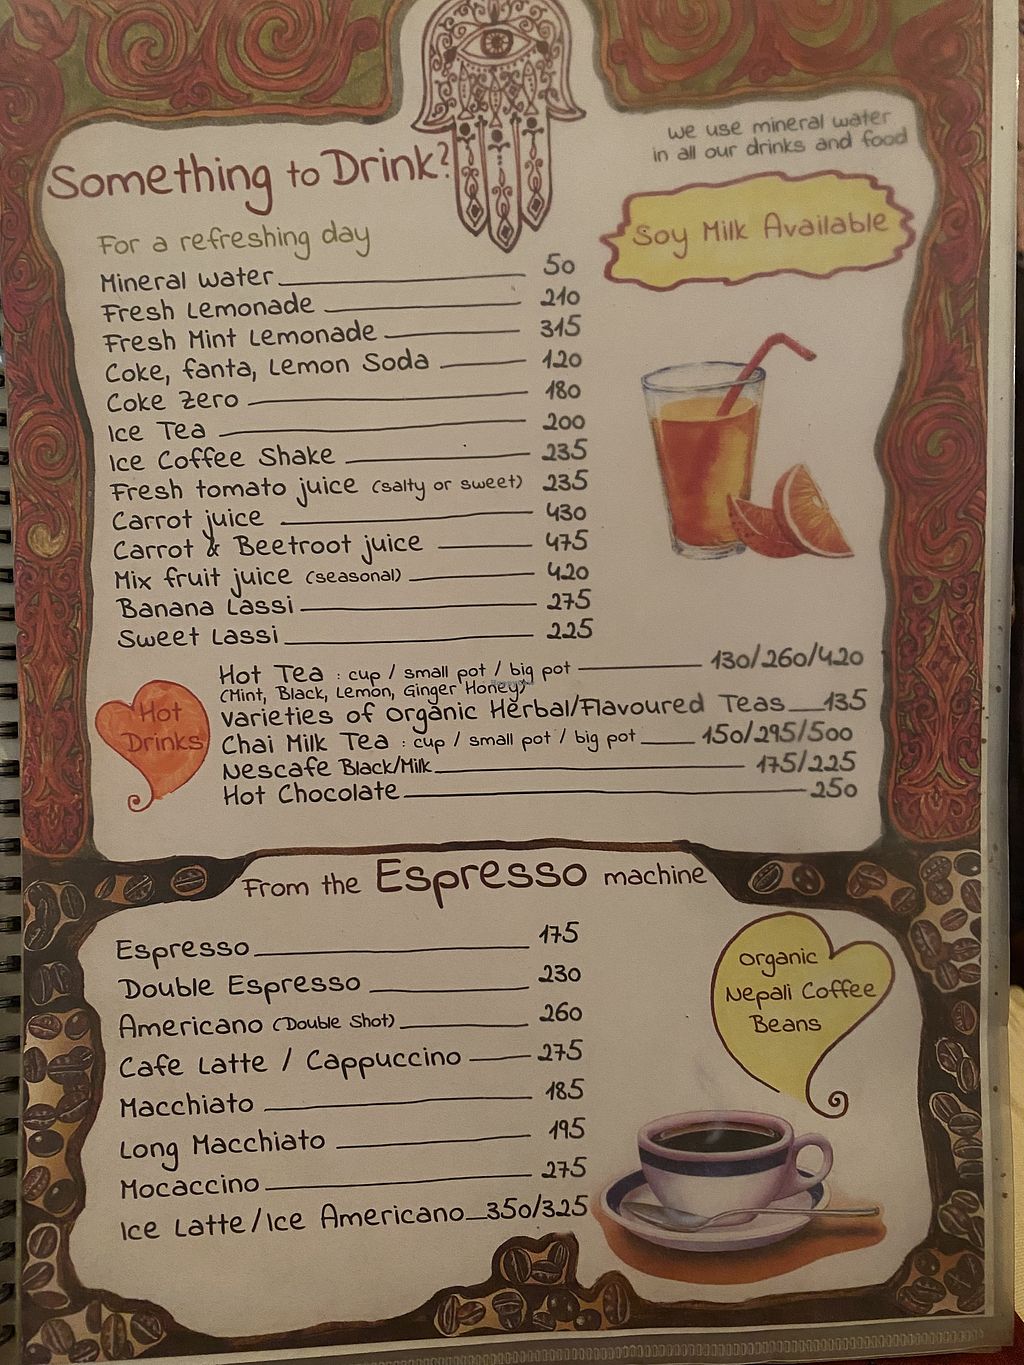 Something to Drink?
we use mineral water
in all our drinks and food
Soy Milk Available
For a refreshing day
Mineral water 50
Fresh Lemonade 210
Fresh Mint Lemonade 315
Coke, fanta, Lemon Soda 120
Coke Zero 180
Ice Tea 200
Ice Coffee Shake 235
Fresh tomato juice (salty or sweet) 235
Carrot juice 430
Carrot & Beetroot juice 475
Mix fruit juice (seasonal) 420
Banana Lassi 275
Sweet Lassi 225
Hot Drinks
Hot Tea : cup / small pot / big pot 130/260/420
(Mint, Black, Lemon, Ginger Honey)
varieties of organic Herbal/Flavoured Teas 135
Chai Milk Tea : cup / small pot / big pot 150/295/500
Nescafe Black/Milk 175/225
Hot Chocolate 250
From the Espresso machine
Espresso 175
Double Espresso 230
Americano (Double Shot) 260
Cafe Latte / Cappuccino 275
Macchiato 185
Long Macchiato 195
Mocaccino 275
Ice Latte/Ice Americano 350/325
organic
Nepali Coffee
Beans